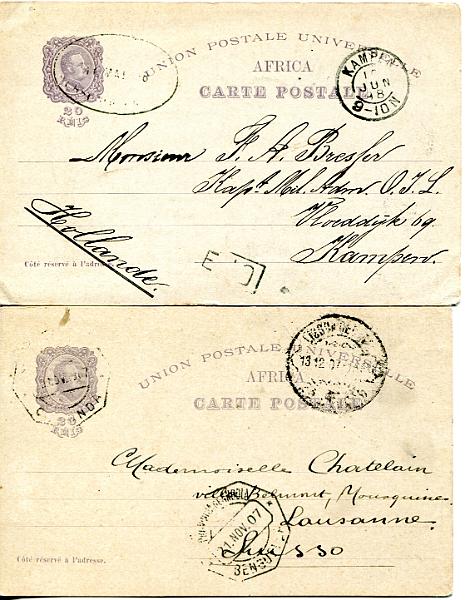 UNION POSTALE UNIVERSELLE
AFRICA
CARTE POSTALE
20
REIS
KAMPEN
JUN
98
9-10N
Monsieur F. A. Bresser
Kapt. Mil. Adm. O. I. L.
Vloeddijk 69.
Kampen.
Hollande.
Côté réservé à l'adresse.
UNION POSTALE UNIVERSELLE
AFRICA
CARTE POSTALE
20
REIS
13 12 07
Mademoiselle Chatelain
villa Belmont, Mousquines
Lausanne
Suisso
21. NOV. 07
BENGUELLA
Côté réservé à l'adresse.